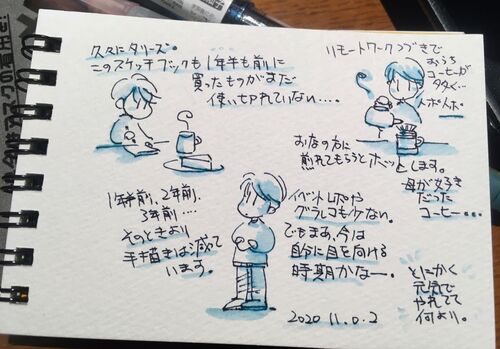 久々にタリーズ。
このスケッチブックも1年半も前に
買ったものがまだ
使い切れていない…。
リモートワークつづきで
おうち
コーヒーが
多く…
人ホ人ホ。
おなの方に
煎れてもらうとホッとします。
母が好き
だった
コーヒー…
1年半前、2年前、
3年前…
そのときより
手描きは減って
います。
イベントレポや
グラレコもケない。
でもまあ、今は
自分に目を向ける
時期かなー。
2020 11.0.2
とにかく
元気で
やれてて
何より。
マスクの着用を!